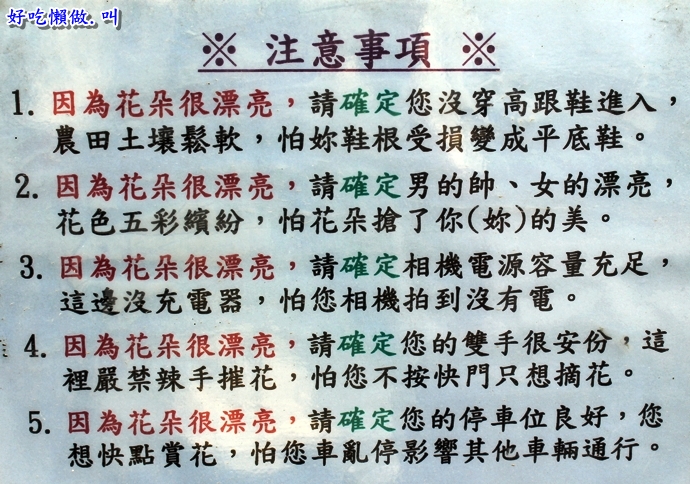 好吃懶做.叫
※ 注意事項 ※
1. 因為花朵很漂亮，請確定您沒穿高跟鞋進入，
農田土壤鬆軟，怕妳鞋根受損變成平底鞋。
2. 因為花朵很漂亮，請確定男的帥、女的漂亮，
花色五彩繽紛，怕花朵搶了你(妳)的美。
3. 因為花朵很漂亮，請確定相機電源容量充足，
這邊沒充電器，怕您相機拍到沒有電。
4. 因為花朵很漂亮，請確定您的雙手很安份，這
裡嚴禁辣手摧花，怕您不按快門只想摘花。
5. 因為花朵很漂亮，請確定您的停車位良好，您
想快點賞花，怕您車亂停影響其他車輛通行。